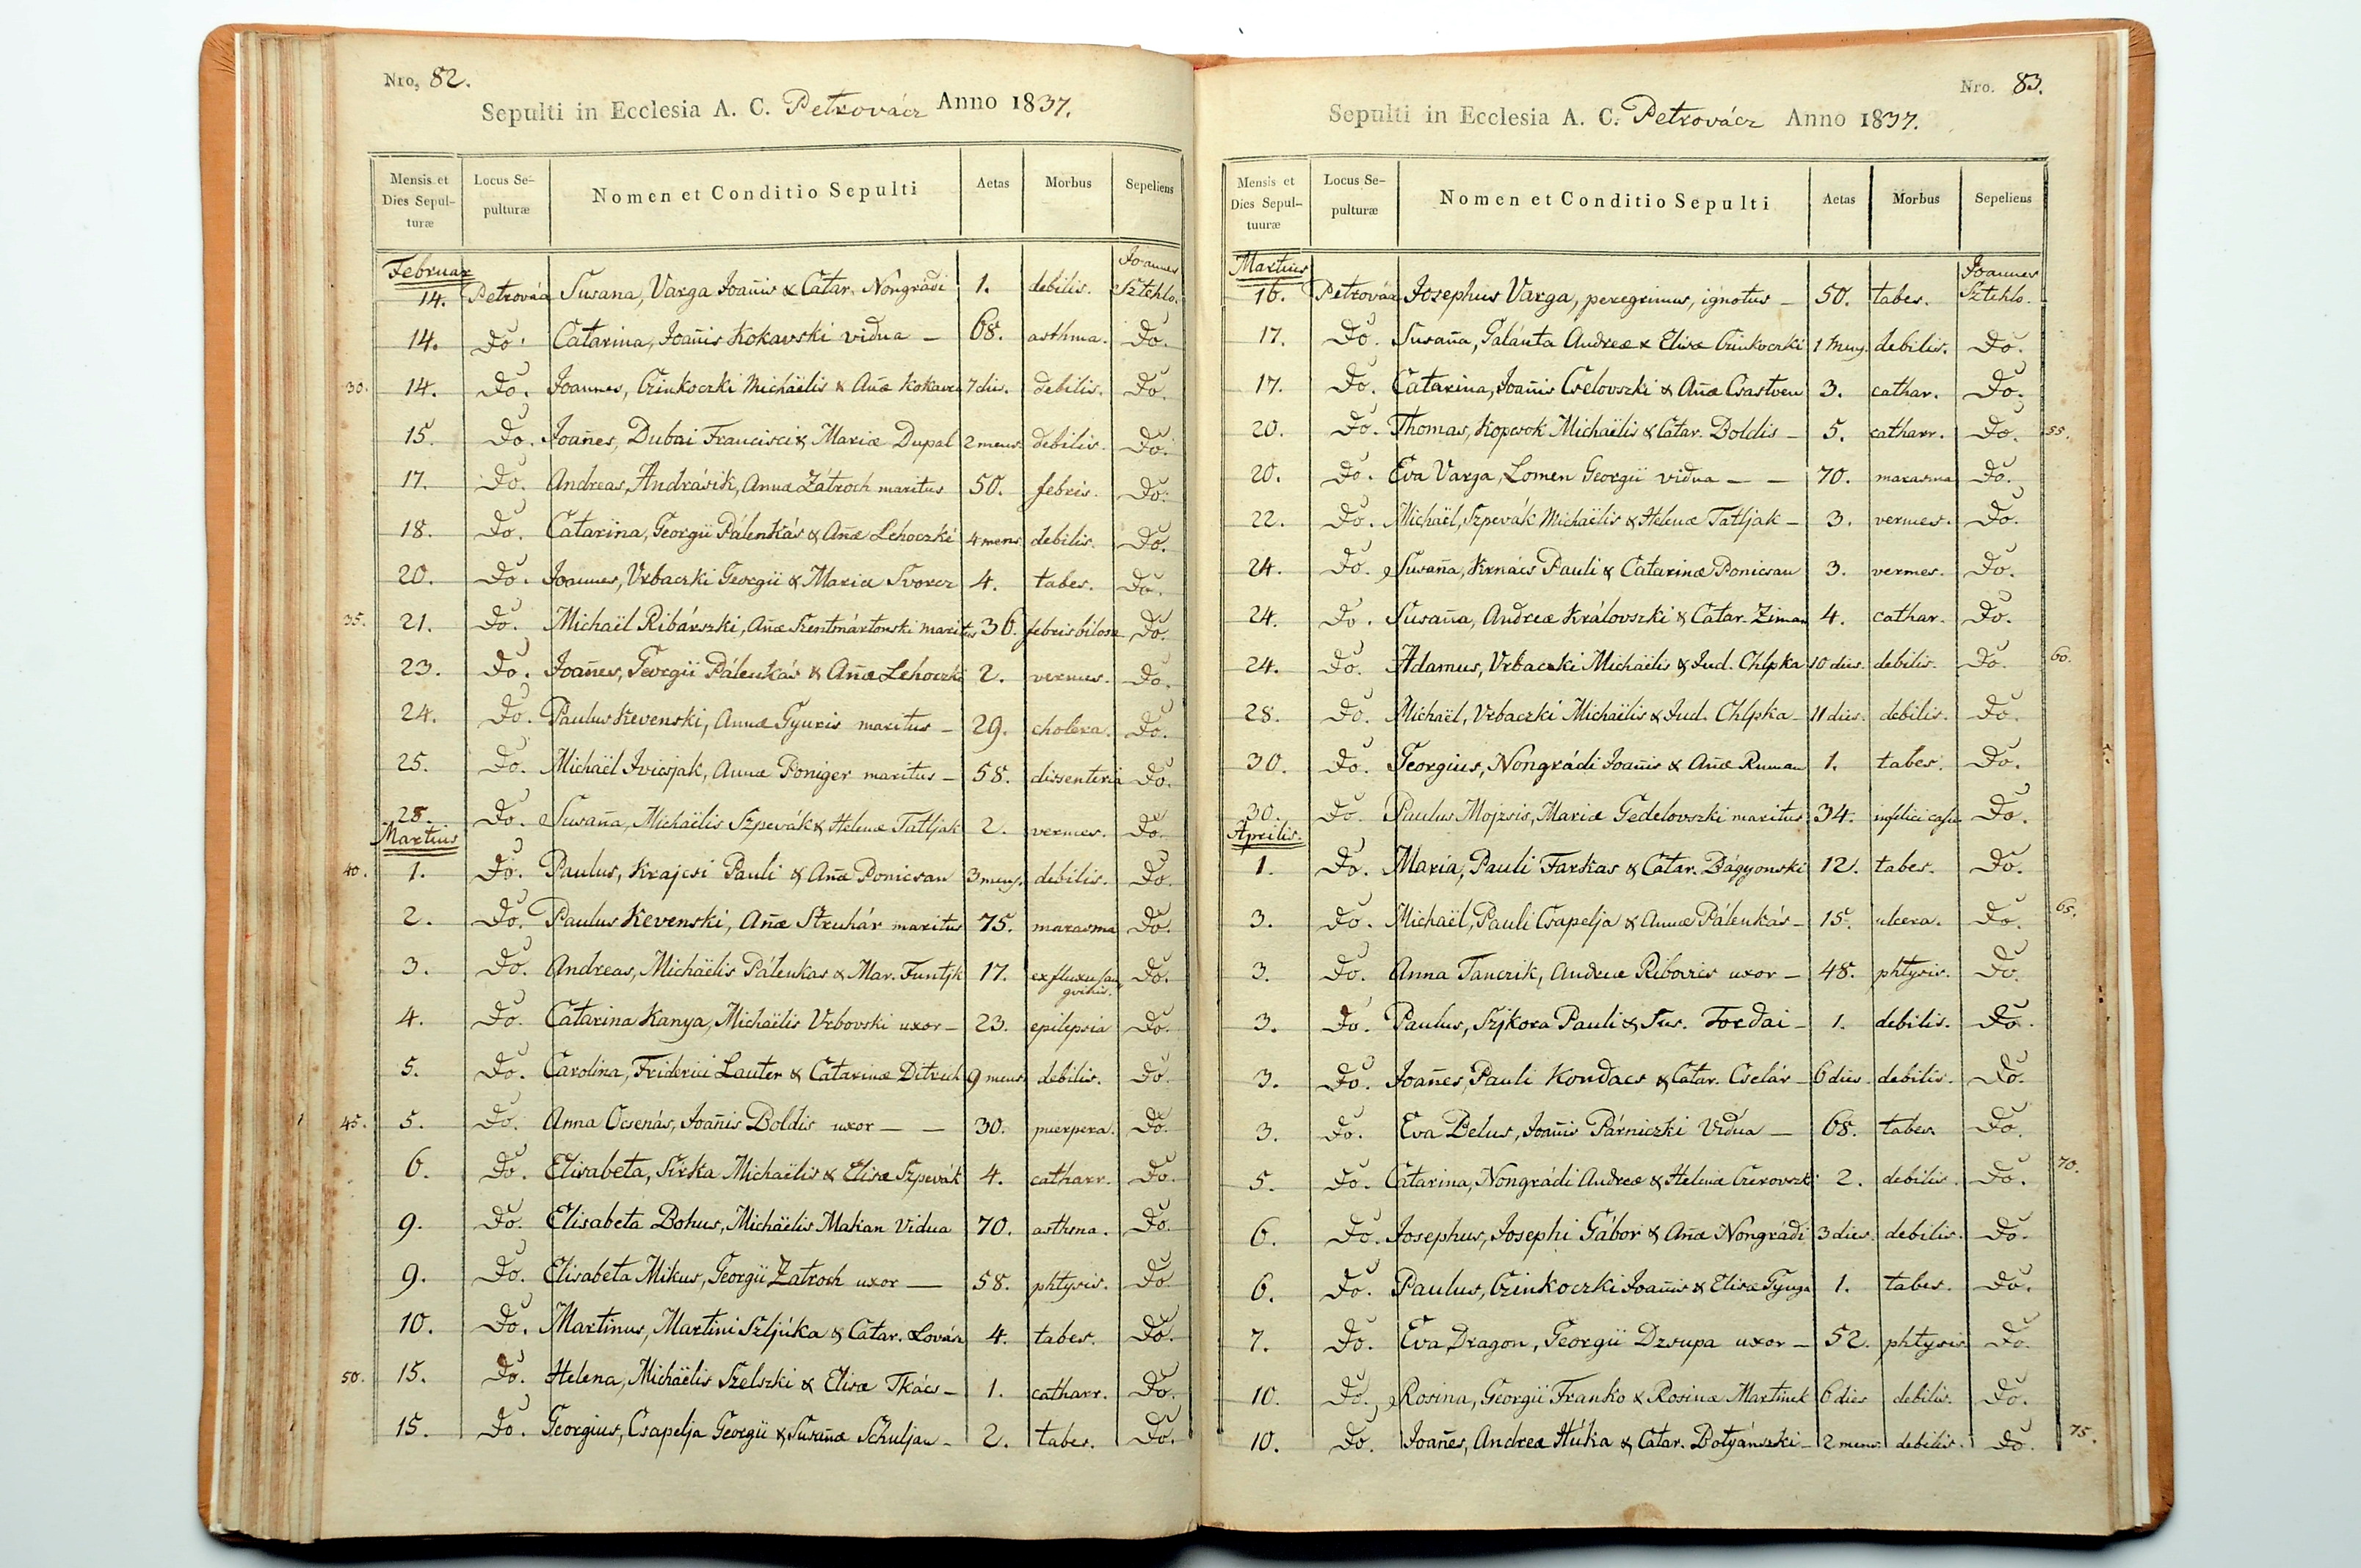 Nro, 82.
Sepulti in Ecclesia A. C. Petrovácz Anno 1837.
Mensis et Dies Sepul-turæ Locus Se-pulturæ Nomen et Conditio Sepulti Aetas Morbus Sepeliens
Februar
14. Petrovácz Susana, Varga Joañis & Catar. Nongrádi 1. debilis. Joannes Sztehlo.
14. Do. Catarina, Joañis Kokavski vidua – 68. asthma. Do.
30. 14. Do. Joannes, Czinkoczki Michaëlis & Añæ Kokavcz 7 dies. debilis. Do.
15. Do. Joañes, Dubai Francisci & Mariæ Dupal 2 mens. debilis. Do.
17. Do. Andreas, Andrásik, Annæ Zátroch maritus 50. febris. Do.
18. Do. Catarina, Georgii Pálenkás & Añæ Lehoczki 4 mens debilis. Do.
20. Do. Joannes, Vrbaczki Georgii & Mariæ Svorcz 4. tabes. Do.
35. 21. Do. Michaël Ribárszki, Añæ Szentmártonski maritus 36. febris bilosæ Do.
23. Do. Joañes, Georgii Pálenkás & Añæ Lehoczki 2. vermes. Do.
24. Do. Paulus Kevenski, Annæ Gyuris maritus – 29. cholera. Do.
25. Do. Michaël Ivicsjak, Annæ Poniger maritus – 58. dissenteria Do.
28. Do. Susaña, Michaëlis Szpevák & Helenæ Tatljak 2. vermes. Do.
Martius
40. 1. Do. Paulus, Krajcsi Pauli & Añæ Ponicsan 3 mens. debilis. Do.
2. Do. Paulus Kevenski, Añæ Struhár maritus 75. marasma Do.
3. Do. Andreas, Michaëlis Pálenkas & Mar. Funtjk 17. ex fluxu sangvinis. Do.
4. Do. Catarina Kanya, Michaëlis Vrbovski uxor – 23. epilepsia Do.
5. Do. Carolina, Friderici Lauter & Catarinæ Ditrich 9 mens debilis. Do.
45. 5. Do. Anna Ocsenás, Joañis Boldis uxor – – 30. puerpera. Do.
6. Do. Elisabeta, Sirka Michaëlis & Elisæ Szpevák 4. catharr. Do.
9. Do. Elisabeta Bohus, Michaëlis Makan Vidua 70. asthma. Do.
9. Do. Elisabeta Mikus, Georgii Zatroch uxor – 58. phtysis. Do.
10. Do. Martinus, Martini Szljúka & Catar. Lovás 4. tabes. Do.
50. 15. Do. Helena, Michaëlis Szelszki & Elisæ Tkács – 1. catharr. Do.
15. Do. Georgius, Csapelja Georgii & Susañæ Schuljan – 2. tabes. Do.
Nro. 83.
Sepulti in Ecclesia A. C. Petrovácz Anno 1837.
Mensis et Dies Sepul-tuuræ Locus Se-pulturæ Nomen et Conditio Sepulti Aetas Morbus Sepeliens
Martius
16. Petrovácz Josephus Varga, peregrinus, ignotus – 50. tabes. Joannes Sztehlo.
17. Do. Susaña, Galánta Andreæ & Elisæ Czinkoczki 1 mens. debilis. Do.
17. Do. Catarina, Joañis Cselovszki & Añæ Csastven 3. cathar. Do.
20. Do. Thomas, Kopcsok Michaëlis & Catar. Boldis – 5. catharr. Do. 55.
20. Do. Eva Varga, Lomen Georgii vidua – – 70. marasma Do.
22. Do. Michaël, Szpevák Michaëlis & Helenæ Tatljak – 3. vermes. Do.
24. Do. Susaña, Krnács Pauli & Catarinæ Ponicsan 3. vermes. Do.
24. Do. Susaña, Andreæ Královszki & Catar. Ziman 4. cathar. Do.
24. Do. Adamus, Vrbaczki Michaëlis & Jud. Chlpka 10 dies. debilis. Do. 60.
28. Do. Michaël, Vrbaczki Michaëlis & Jud. Chlpka – 11 dies. debilis. Do.
30. Do. Georgius, Nongrádi Joañis & Añæ Ruman 1. tabes. Do.
30. Do. Paulus Mojzsis, Mariæ Gedelovszki maritus 34. infelici casu Do.
Aprilis.
1. Do. Maria, Pauli Farkas & Catar. Bágyonski 12. tabes. Do.
3. Do. Michaël, Pauli Csapelja & Annæ Pálenkás – 15. ulcera. Do. 65.
3. Do. Anna Tanczik, Andreæ Ribovics uxor – 48. phtysis. Do.
3. Do. Paulus, Szjkora Pauli & Sus. Fordai – 1. debilis. Do.
3. Do. Joañes, Pauli Kondacs & Catar. Cselár – 6 dies. debilis. Do.
3. Do. Eva Belus, Joañis Párniczki Vidua – 68. tabes. Do.
5. Do. Catarina, Nongrádi Andreæ & Helenæ Czerovszki 2. debilis. Do. 70.
6. Do. Josephus, Josephi Gábor & Añæ Nongrádi 3 dies. debilis. Do.
6. Do. Paulus, Czinkoczki Joañis & Elisæ Gyuga 1. tabes. Do.
7. Do. Eva Dragon, Georgii Dzsupa uxor – 52. phtysis Do.
10. Do. Rosina, Georgii Franko & Rosinæ Martinek 6 dies debilis. Do.
10. Do. Joañes, Andreæ Húka & Catar. Botyánszki – 2 mens. debilis. Do. 75.